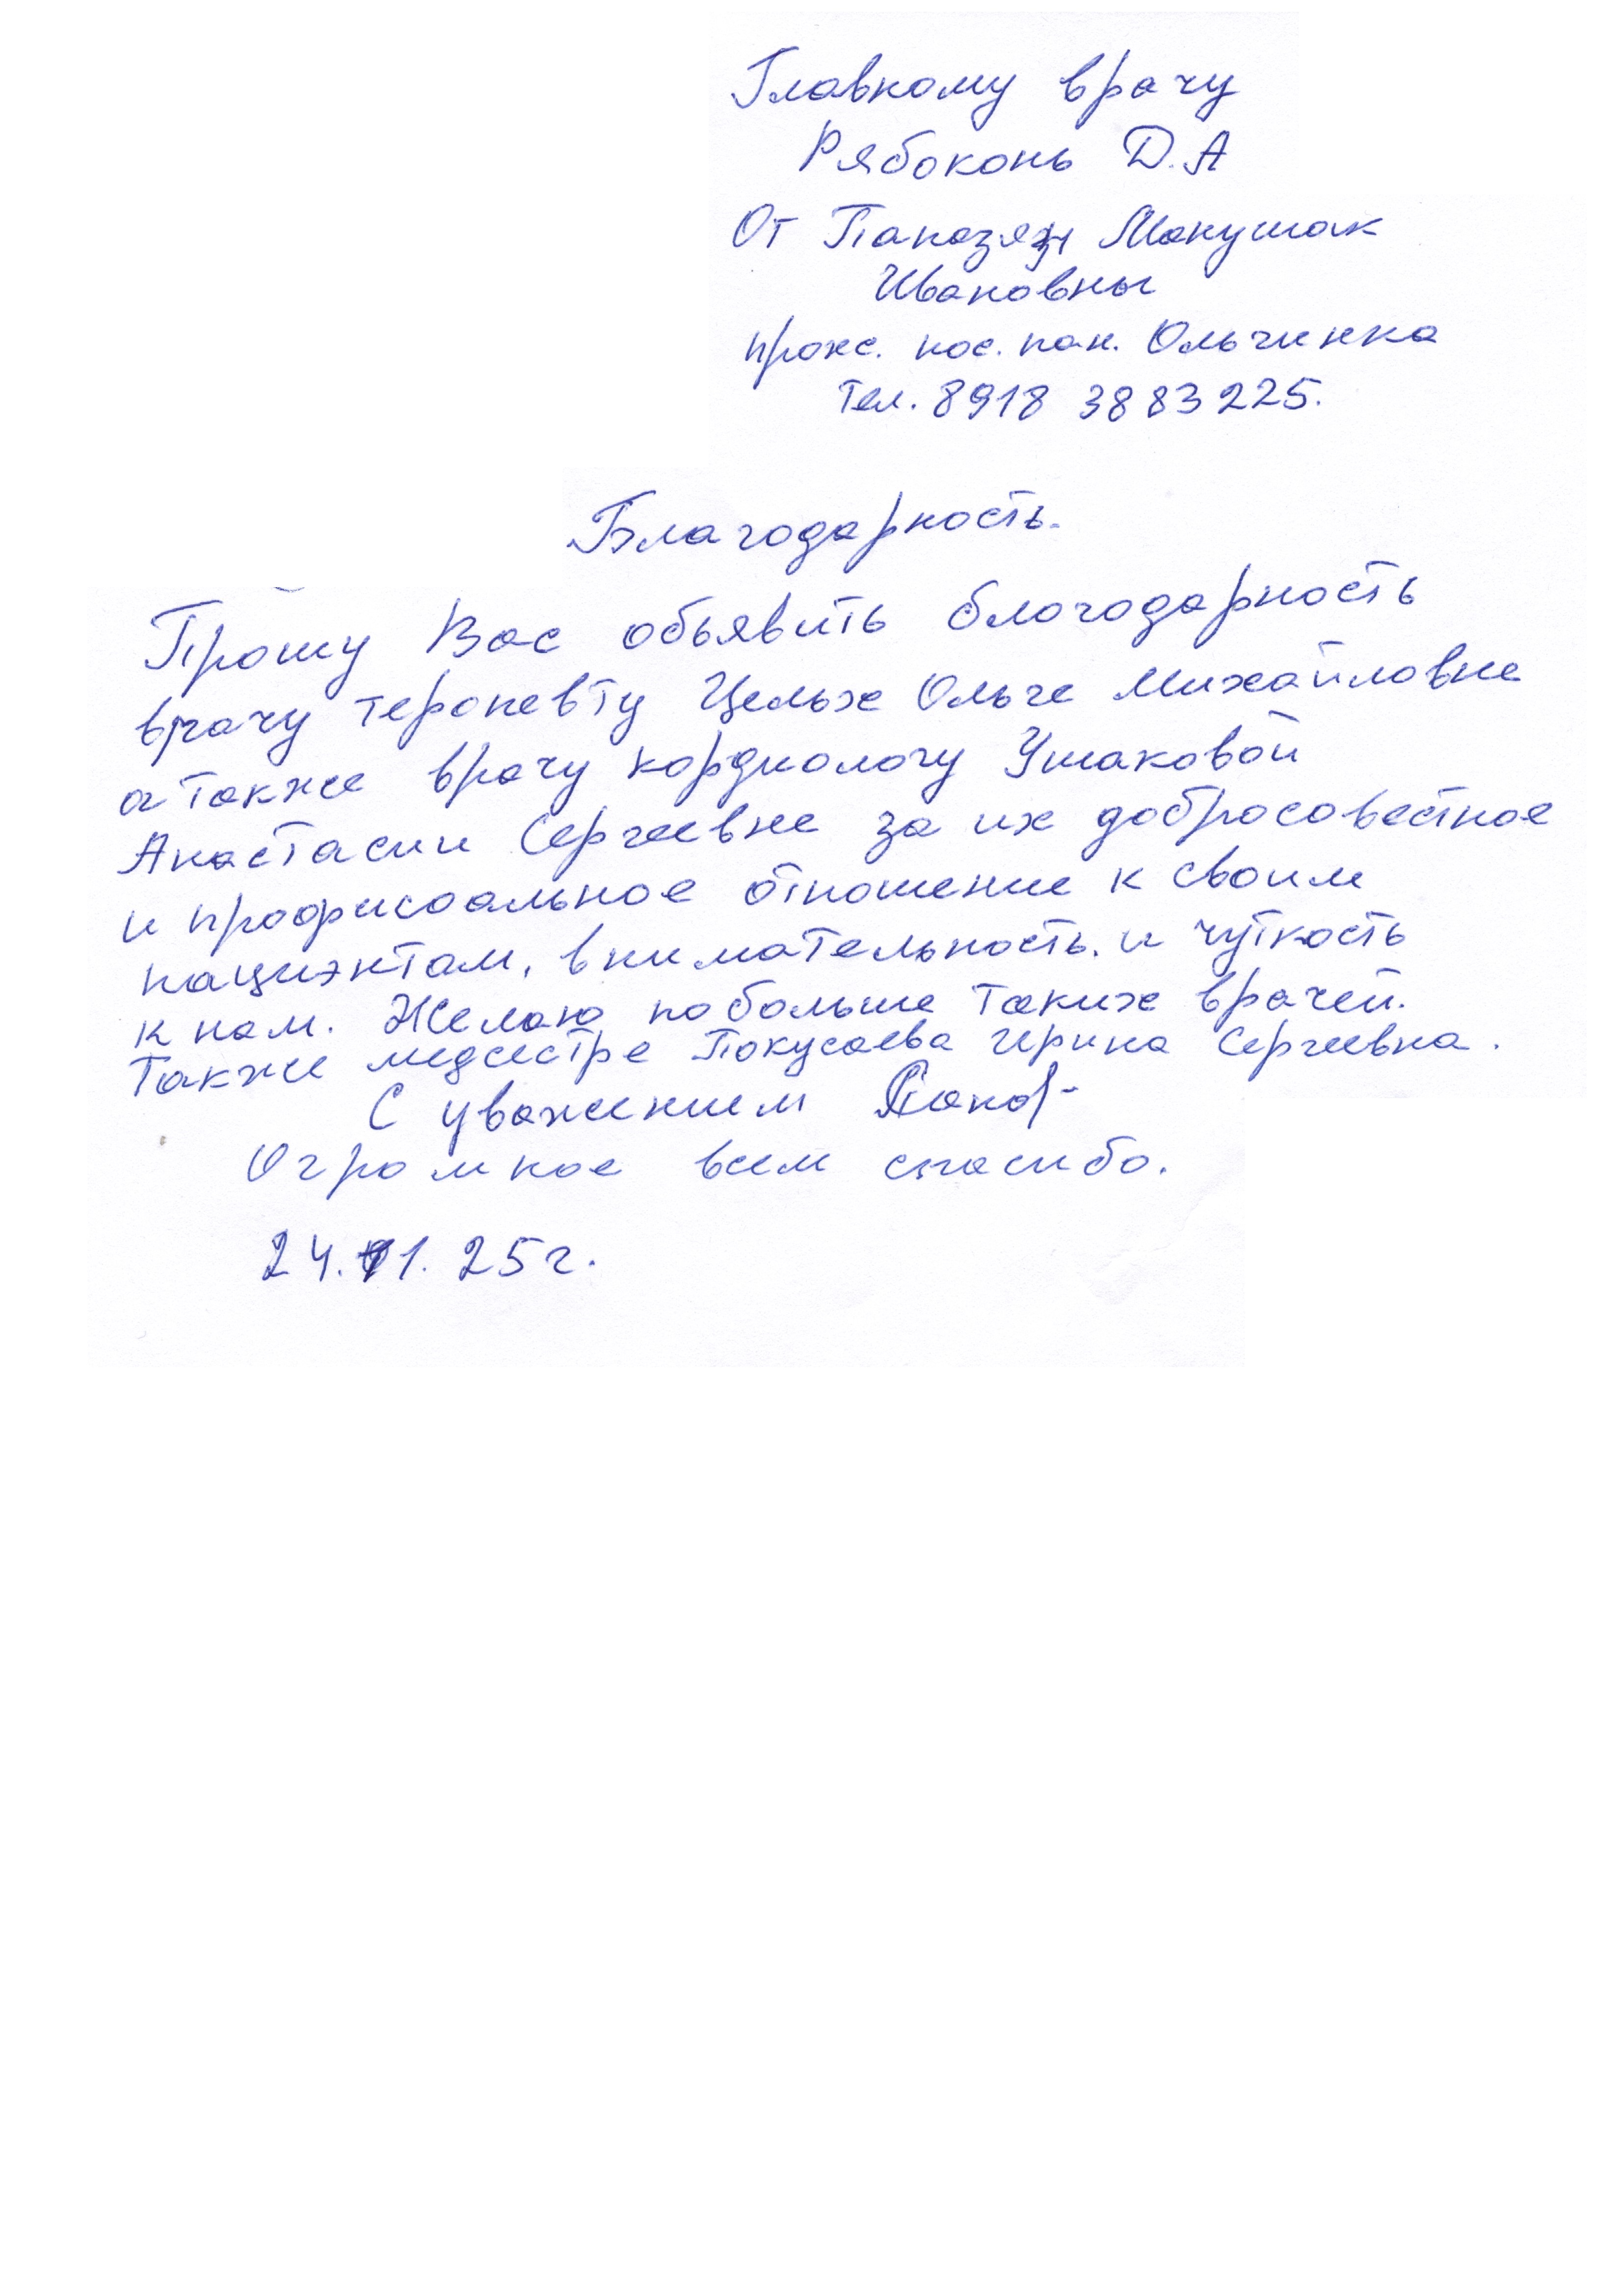 Главному врачу
Рябоконь Д.А
От Папазян Манушак
Ивановны
прож. пос. пан. Ольгинка
тел. 8918 3883225.
Благодарность.
Прошу Вас обьявить благодарность
врачу терапевту Целых Ольге Михайловне
а также врачу кардиологу Ушаковой
Анастасии Сергеевне за их добросовестное
и профисоальное отношение к своим
пациэнтам, внимательность. и чуткость
к нам. Желаю побольше таких врачей.
Также медсестре Покусаева Ирина Сергеевна.
С уважением
Огромное всем спасибо.
24.11.25г.